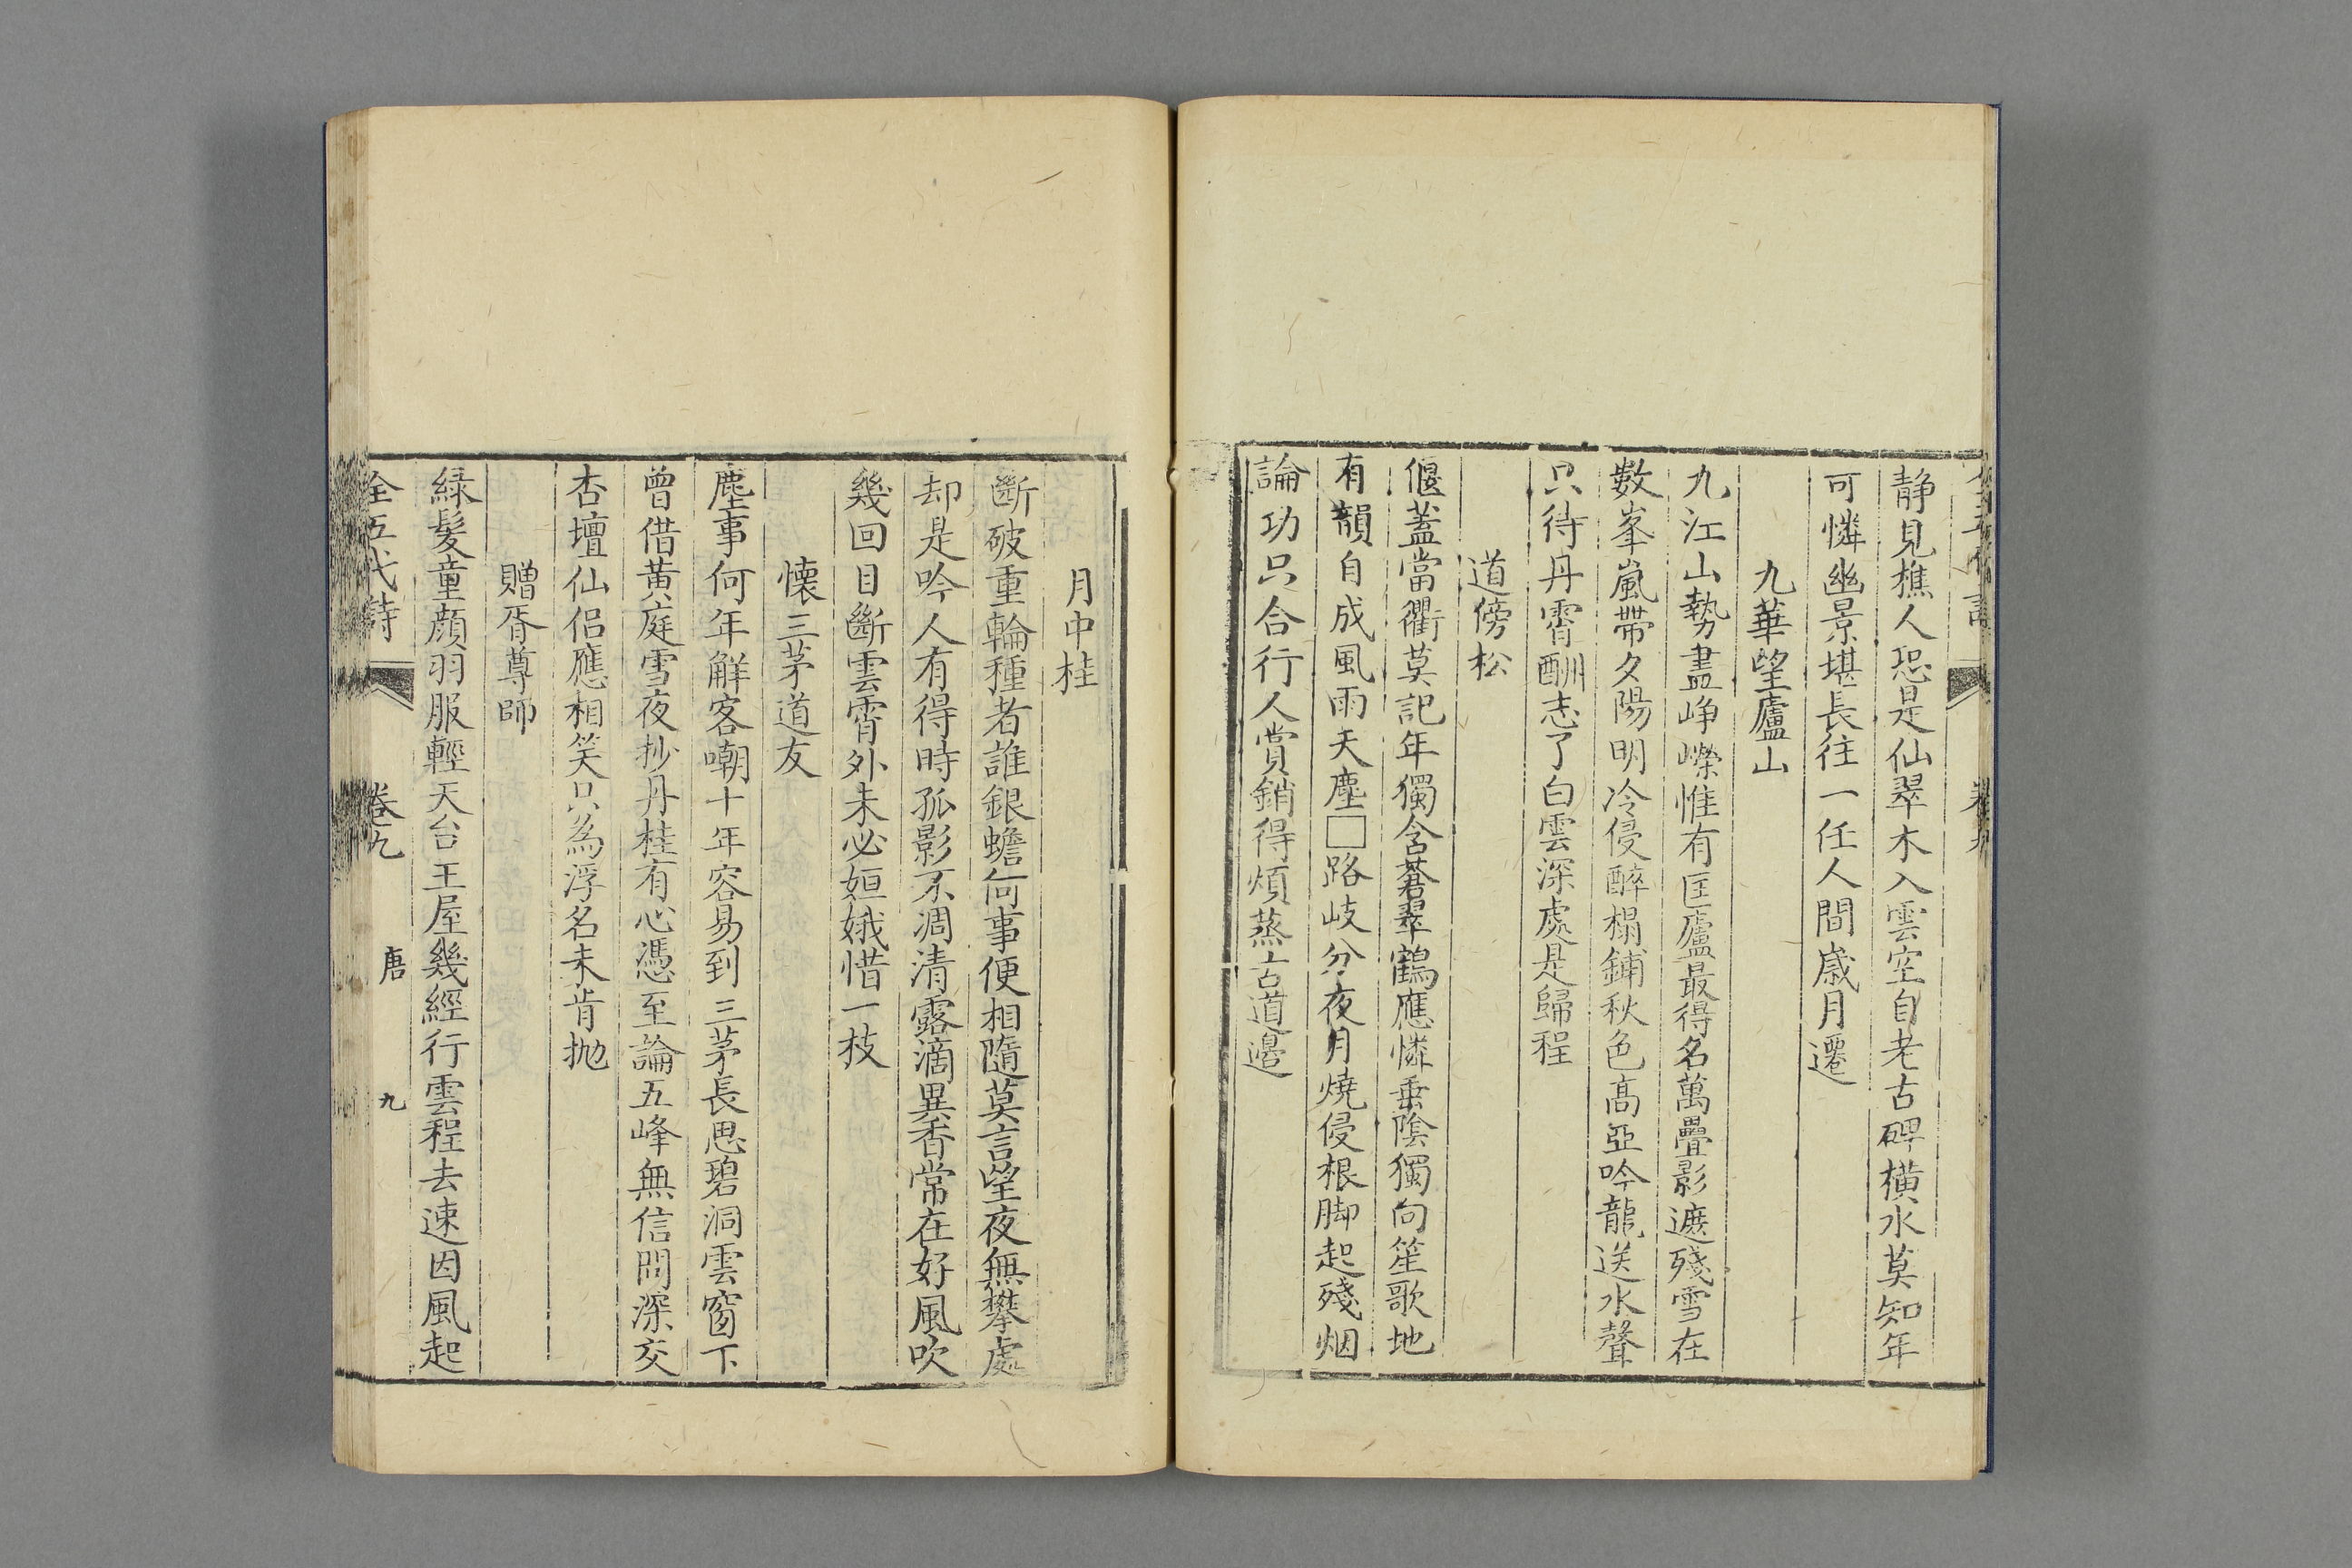 静見樵人恐是仙翠木入雲空自老古碑横水莫知年
可憐幽景堪長往一任人間歳月遷
九華望廬山
九江山勢盡峥嶸惟有匡廬最得名萬疊影遮殘雪在
數峯嵐帶夕陽明冷侵醉榻鋪秋色高亞吟龍送水聲
只待丹霄酬志了白雲深處是歸程
道傍松
偃蓋當衢莫記年獨含蒼翠鶴應憐垂陰獨向笙歌地
有韻自成風雨天塵□路岐分夜月燒侵根脚起殘烟
論功只合行人賞銷得煩蒸古道邊
月中桂
斷破重輪種者誰銀蟾何事便相隨莫言望夜無攀處
却是吟人有得時孤影不凋清露滴異香常在好風吹
幾回目斷雲霄外未必姮娥惜一枝
懐三茅道友
塵事何年觧客嘲十年容易到三茅長思碧洞雲窗下
曾借黄庭雪夜抄丹桂有心憑至論五峰無信問深交
杏壇仙侣應相笑只為浮名未肯抛
贈胥尊師
緑髮童顔羽服輕天台王屋幾經行雲程去速因風起
全五代詩 卷九 唐 九